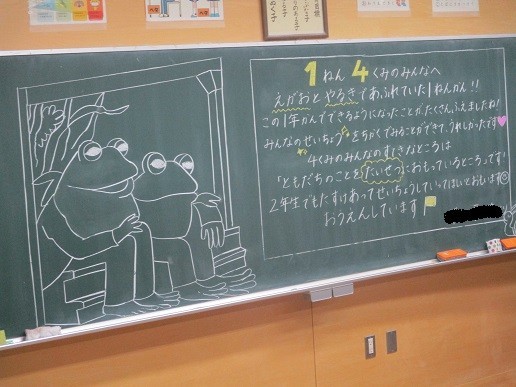 1ねん4くみのみんなへ
えがおとやるきであふれていた1ねんかん!!
この1年かんでできるようになったことがたくさんふえましたね!
みんなのせいちょうをちかくでみることができて、うれしかったです♥
4くみのみんなのすてきなところは
「ともだちのことをたいせつにおもっているところ」です!
2年生でもたすけあってせいちょうしていってほしいとおもいます◎
おうえんしています!